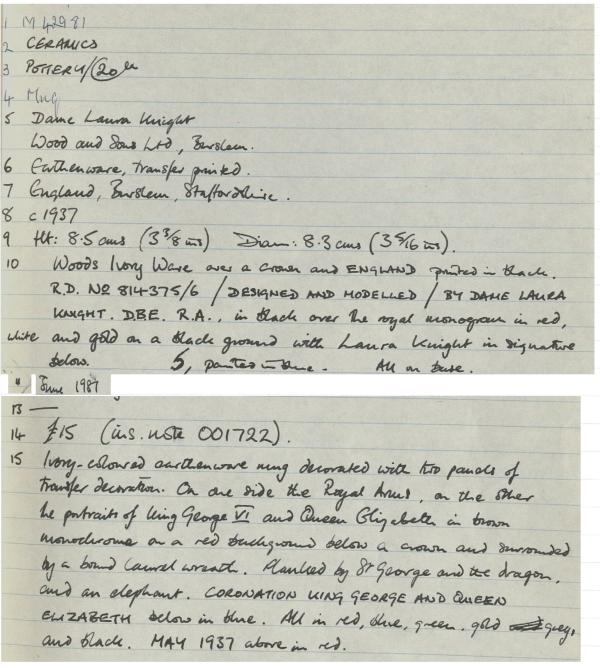 1 M 42981
2 CERAMICS
3 POTTERY/20th
4 Mug
5 Dame Laura Knight
Wood and Sons Ltd, Burslem.
6 Earthenware, transfer printed.
7 England, Burslem, Staffordshire.
8 c 1937
9 Ht: 8.5 cms (3 3/8 ins) Diam: 8.3 cms (3 5/16 ins).
10 Woods Ivory Ware over a crown and ENGLAND printed in black.
R.D. No 814375/6 / DESIGNED AND MODELLED / BY DAME LAURA
KNIGHT. D.B.E. R.A., in black over the royal monogram in red,
white and gold on a black ground with Laura Knight in signature
below. 5, painted in blue. All on base.
11 June 1987
13 —
14 £15 (ins. note 001722).
15 Ivory-coloured earthenware mug decorated with two panels of
transfer decoration. On one side the Royal Arms, on the other
the portraits of King George VI and Queen Elizabeth in brown
monochrome on a red background below a crown and surrounded
by a bound laurel wreath. Flanked by St George and the dragon,
and an elephant. CORONATION KING GEORGE AND QUEEN
ELIZABETH below in blue. All in red, blue, green, gold grey,
and black. MAY 1937 above in red.